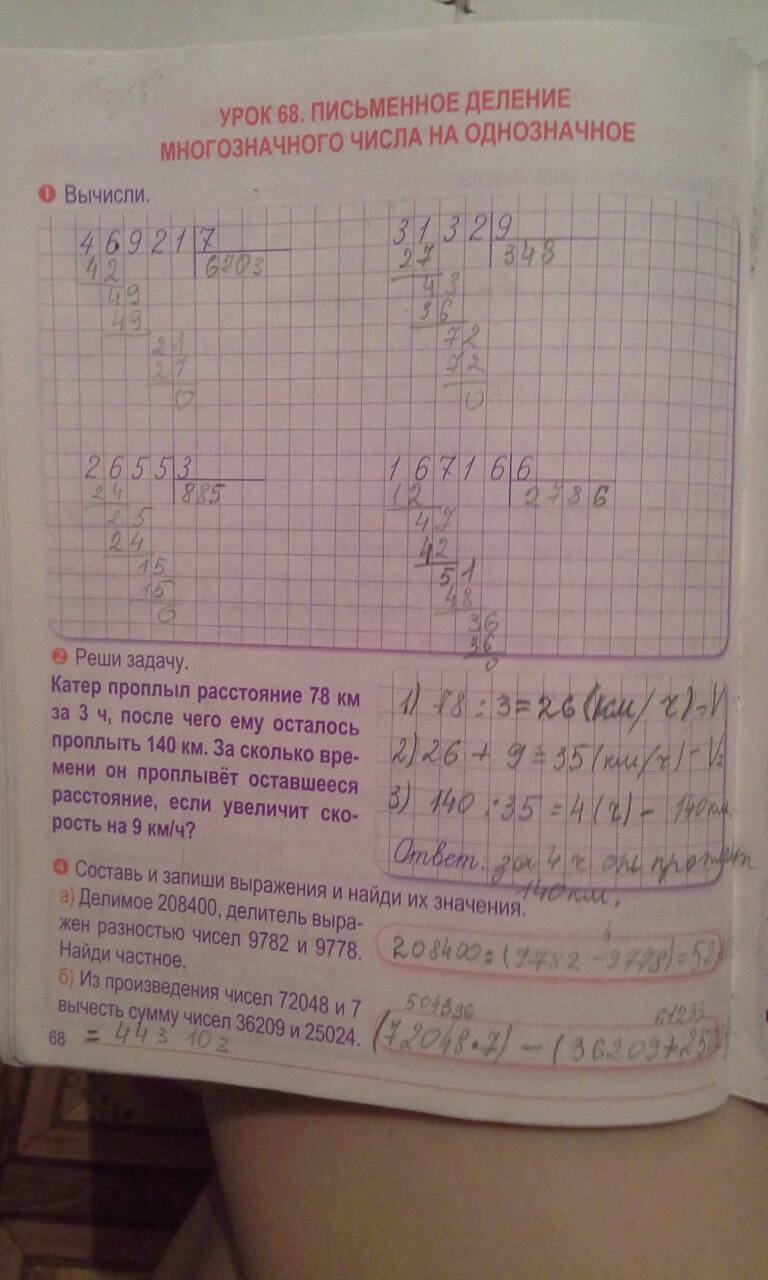 УРОК 68. ПИСЬМЕННОЕ ДЕЛЕНИЕ
МНОГОЗНАЧНОГО ЧИСЛА НА ОДНОЗНАЧНОЕ
1 Вычисли.
46921 7
42 6703
49
49
21
21
0
31329
27 348
43
36
72
72
0
26553
24 885
25
24
15
15
0
167166
12 2786
47
42
51
48
36
36
0
2 Реши задачу.
Катер проплыл расстояние 78 км
за 3 ч, после чего ему осталось
проплыть 140 км. За сколько вре-
мени он проплывёт оставшееся
расстояние, если увеличит ско-
рость на 9 км/ч?
1) 78 : 3 = 26 (км/ч) - V
2) 26 + 9 = 35 (км/ч) - V2
3) 140 : 35 = 4 (ч) - 140 км.
Ответ: за 4 ч он
140 км.
4 Составь и запиши выражения и найди их значения.
а) Делимое 208400, делитель выра-
жен разностью чисел 9782 и 9778.
Найди частное.
4
208400 : (9782 - 9778) =
б) Из произведения чисел 72048 и 7
вычесть сумму чисел 36209 и 25024.
504336 61233
(72048 · 7) - (36209 +
= 443 103
68